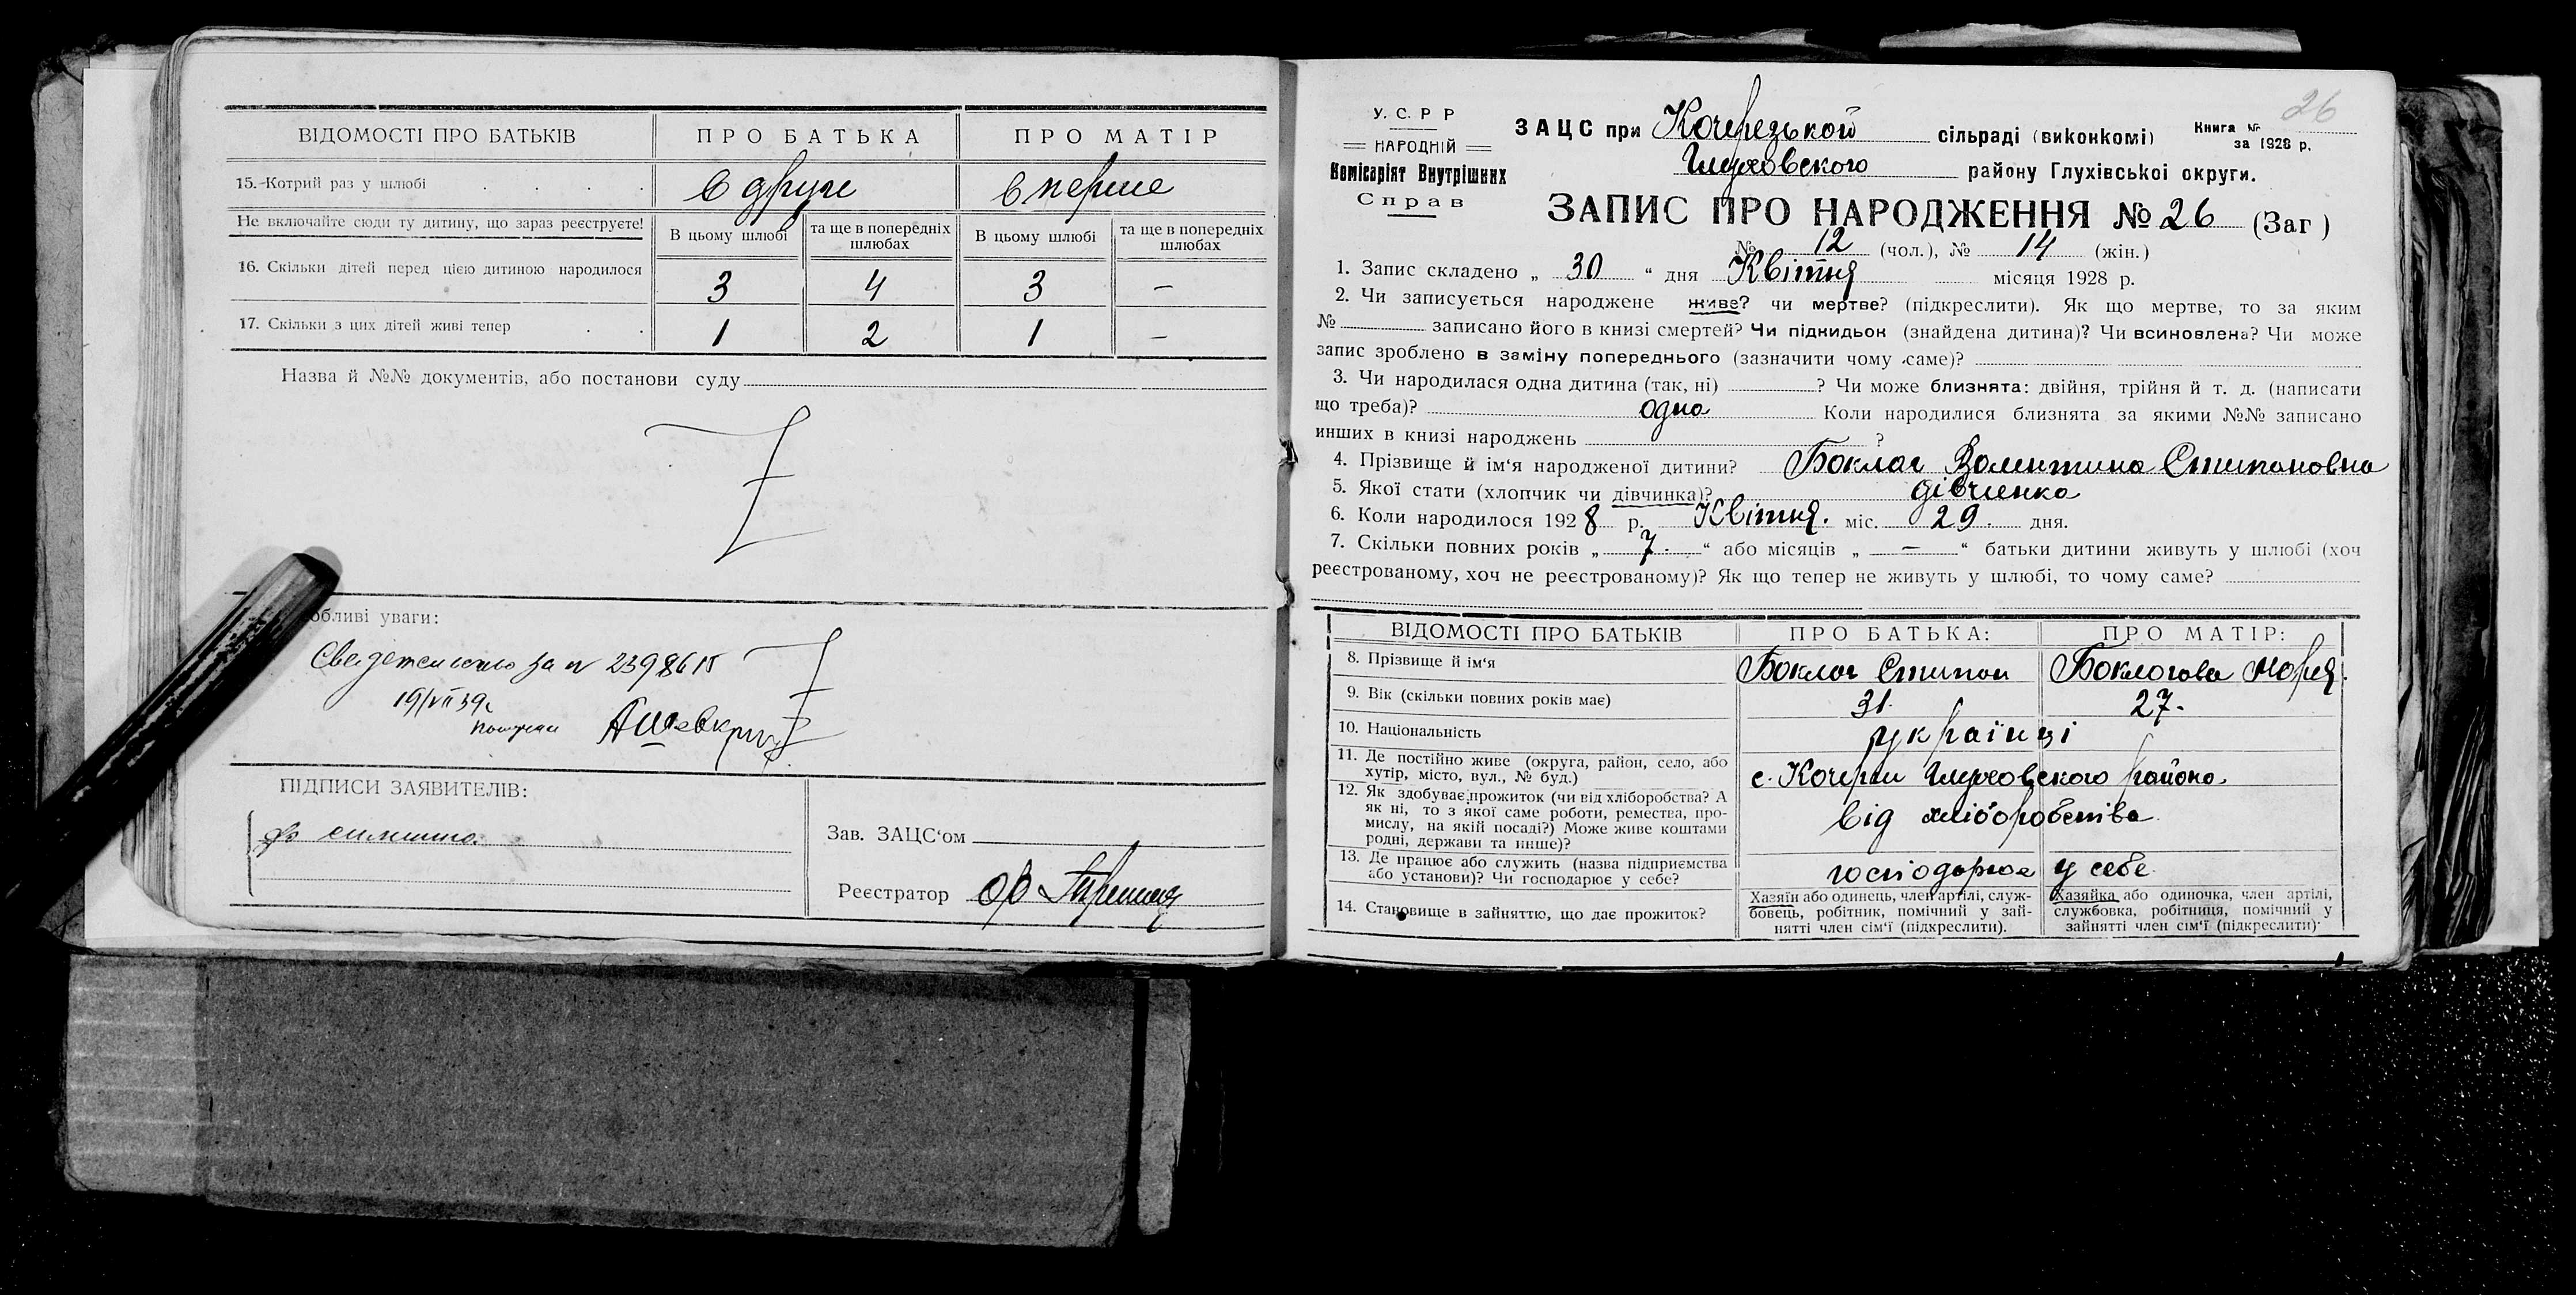 ВІДОМОСТІ ПРО БАТЬКІВ ПРО БАТЬКА ПРО МАТІР
15. Котрий раз у шлюбі в друге в перше
Не включайте сюди ту дитину, що зараз реєструєте! В цьому шлюбі та ще в попередніх шлюбах В цьому шлюбі та ще в попередніх шлюбах
16. Скільки дітей перед цією дитиною народилося 3 4 3 —
17. Скільки з цих дітей живі тепер 1 2 1 —
Назва й №№ документів, або постанови суду
обливі уваги:
за № 239861
19/VII 39г
ПІДПИСИ ЗАЯВИТЕЛІВ:
Зав. ЗАЦС‘ом
Реєстратор
26
У. С. Р Р
НАРОДНІЙ
Комісаріят Внутрішних
Справ
ЗАЦС при Кочерезькой сільраді (виконкомі) Книга №
за 1928 р.
Глуховского району Глухівської округи.
ЗАПИС ПРО НАРОДЖЕННЯ № 26 (Заг)
№ 12 (чол.), № 14 (жін.)
1. Запис складено „ 30 “ дня Квітня місяця 1928 р.
2. Чи записується народжене живе? чи мертве? (підкреслити). Як що мертве, то за яким
№ записано його в книзі смертей? Чи підкидьок (знайдена дитина)? Чи всиновлена? Чи може
запис зроблено в заміну попереднього (зазначити чому саме)?
3. Чи народилася одна дитина (так, ні) ? Чи може близнята: двійня, трійня й т. д. (написати
що треба)? одна Коли народилися близнята за якими №№ записано
инших в книзі народжень ?
4. Прізвище й ім‘я народженої дитини? Боклаг Валентина Стипановна
5. Якої стати (хлопчик чи дівчинка)? дівченка
6. Коли народилося 1928 р. Квітня. міс. 29. дня.
7. Скільки повних років „ 7. “ або місяців „ — “ батьки дитини живуть у шлюбі (хоч
реєстрованому, хоч не реєстрованому)? Як що тепер не живуть у шлюбі, то чому саме?
ВІДОМОСТІ ПРО БАТЬКІВ ПРО БАТЬКА: ПРО МАТІР:
8. Прізвище й ім‘я Боклаг Стипан Боклогова Марія.
9. Вік (скільки повних років має) 31. 27.
10. Національність українці
11. Де постійно живе (округа, район, село, або
хутір, місто, вул., № буд.) с. Кочерги Глуховского района
12. Як здобуває прожиток (чи від хліборобства? А
як ні, то з якої саме роботи, ремества, про-
мислу, на якій посаді?) Може живе коштами
родні, держави та инше)? від хліборобства
13. Де працює або служить (назва підприємства
або установи)? Чи господарює у себе? господарює у себе
14. Становище в зайняттю, що дає прожиток?
Хазяїн або одинець, член артілі, служ-
бовець, робітник, помічний у зай-
нятті член сім‘ї (підкреслити).
Хазяйка або одиночка, член артілі,
службовка, робітниця, помічний у
зайнятті член сім‘ї (підкреслити)